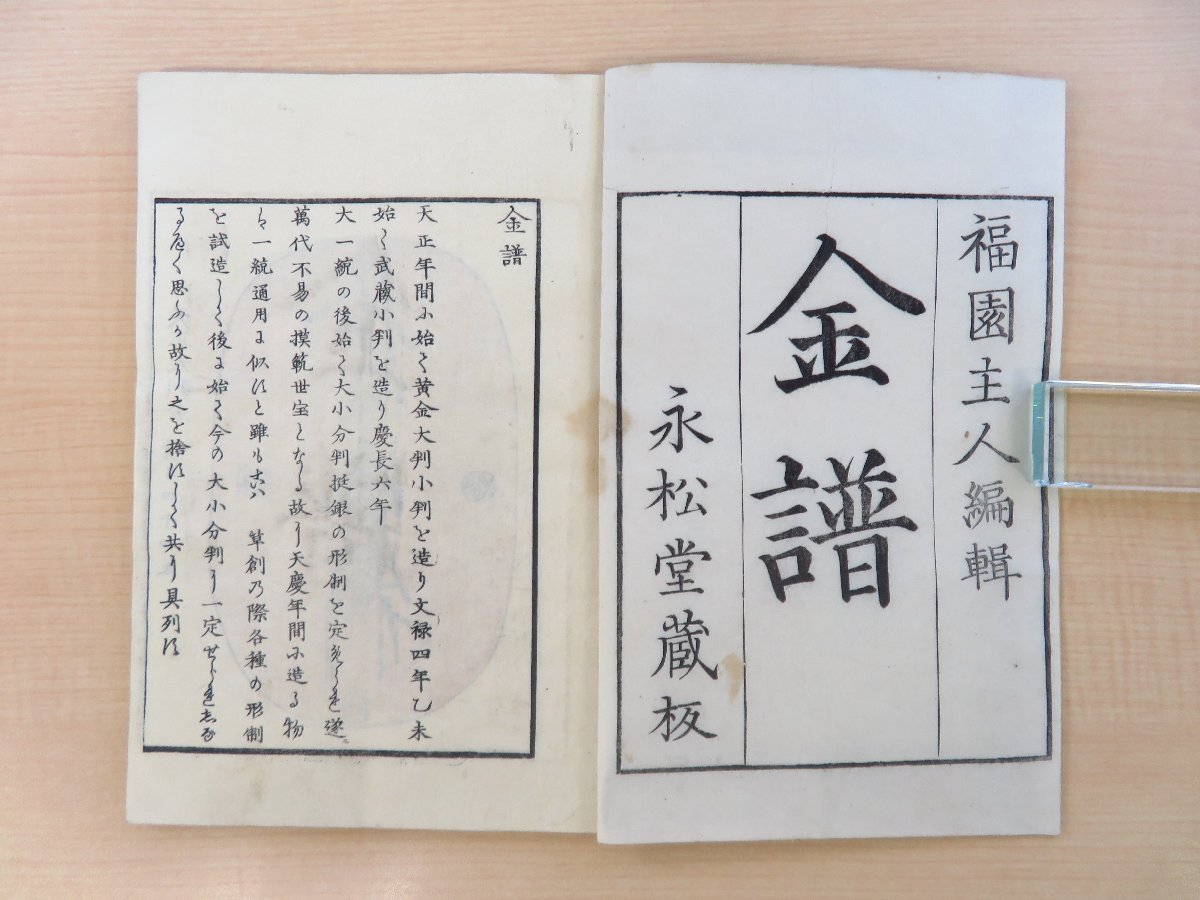 福園主人編輯
金譜
永松堂蔵板
金譜
天正年間に始て黄金大判小判を造り文禄四年乙未
始て武蔵小判を造り慶長六年
大一統の後始て大小分判挺銀の形制を定められ遂に
萬代不易の摸範世宝となる故に天慶年間に造る物
は一統通用に似すと雖も 草創乃際各種の形制
を試造して後に始て今の大小分判に一定せられ
る 思ふか故に之を捨すして共に具列す